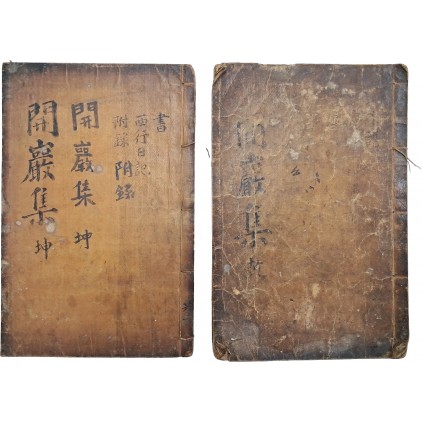 書
西行日記
附錄
附錄
開巖集 坤
開巖集 坤
開巖集